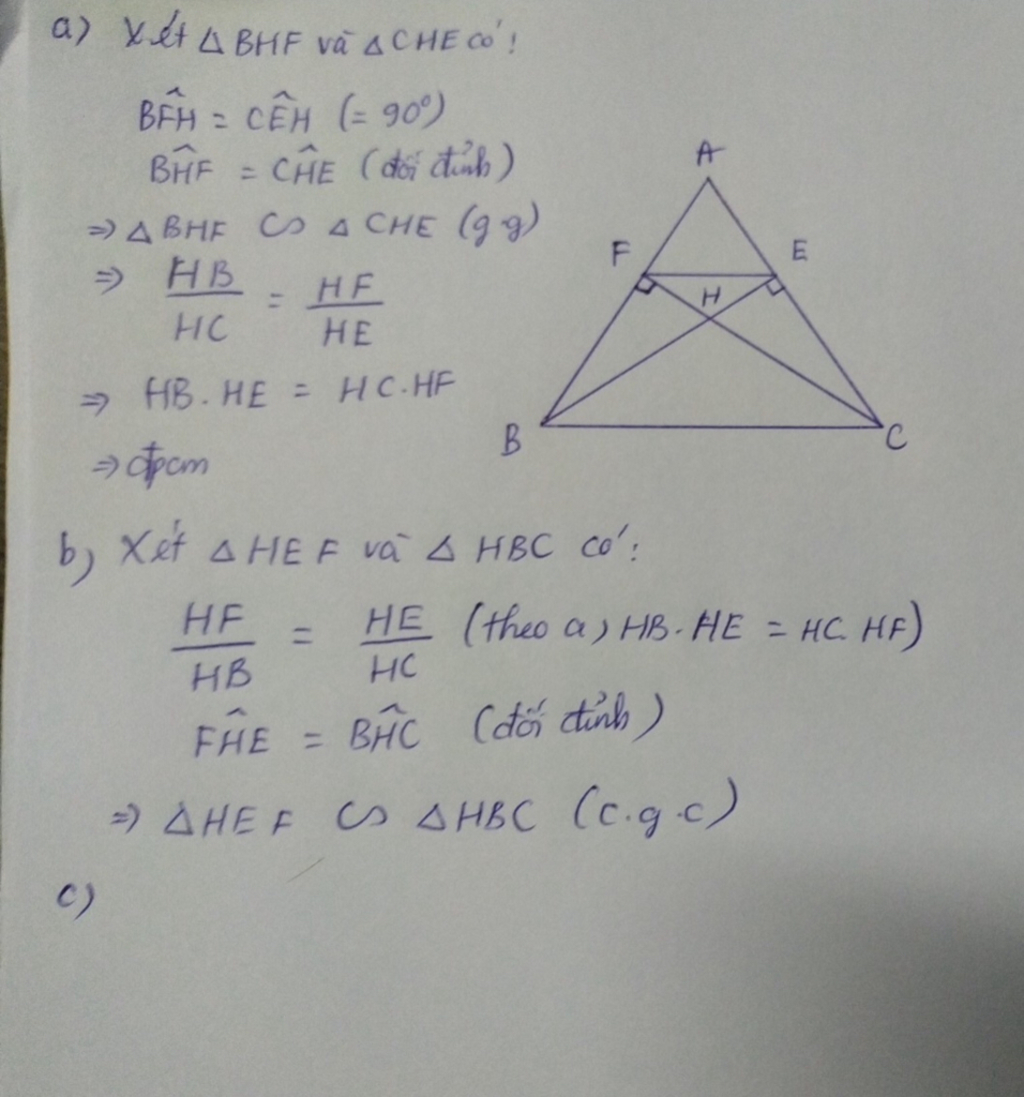 a) Xét △BHF và △CHE có:
BF̂H = CÊH (= 90°)
BĤF = CĤE (đối đỉnh)
⇒ △BHF ∽ △CHE (g.g)
⇒ HB/HC = HF/HE
⇒ HB.HE = HC.HF
⇒ đpcm
A
F
E
H
B
C
b) Xét △HEF và △HBC có:
HF/HB = HE/HC (theo a) HB.HE = HC.HF)
FĤE = BĤC (đối đỉnh)
⇒ △HEF ∽ △HBC (c.g.c)
c)